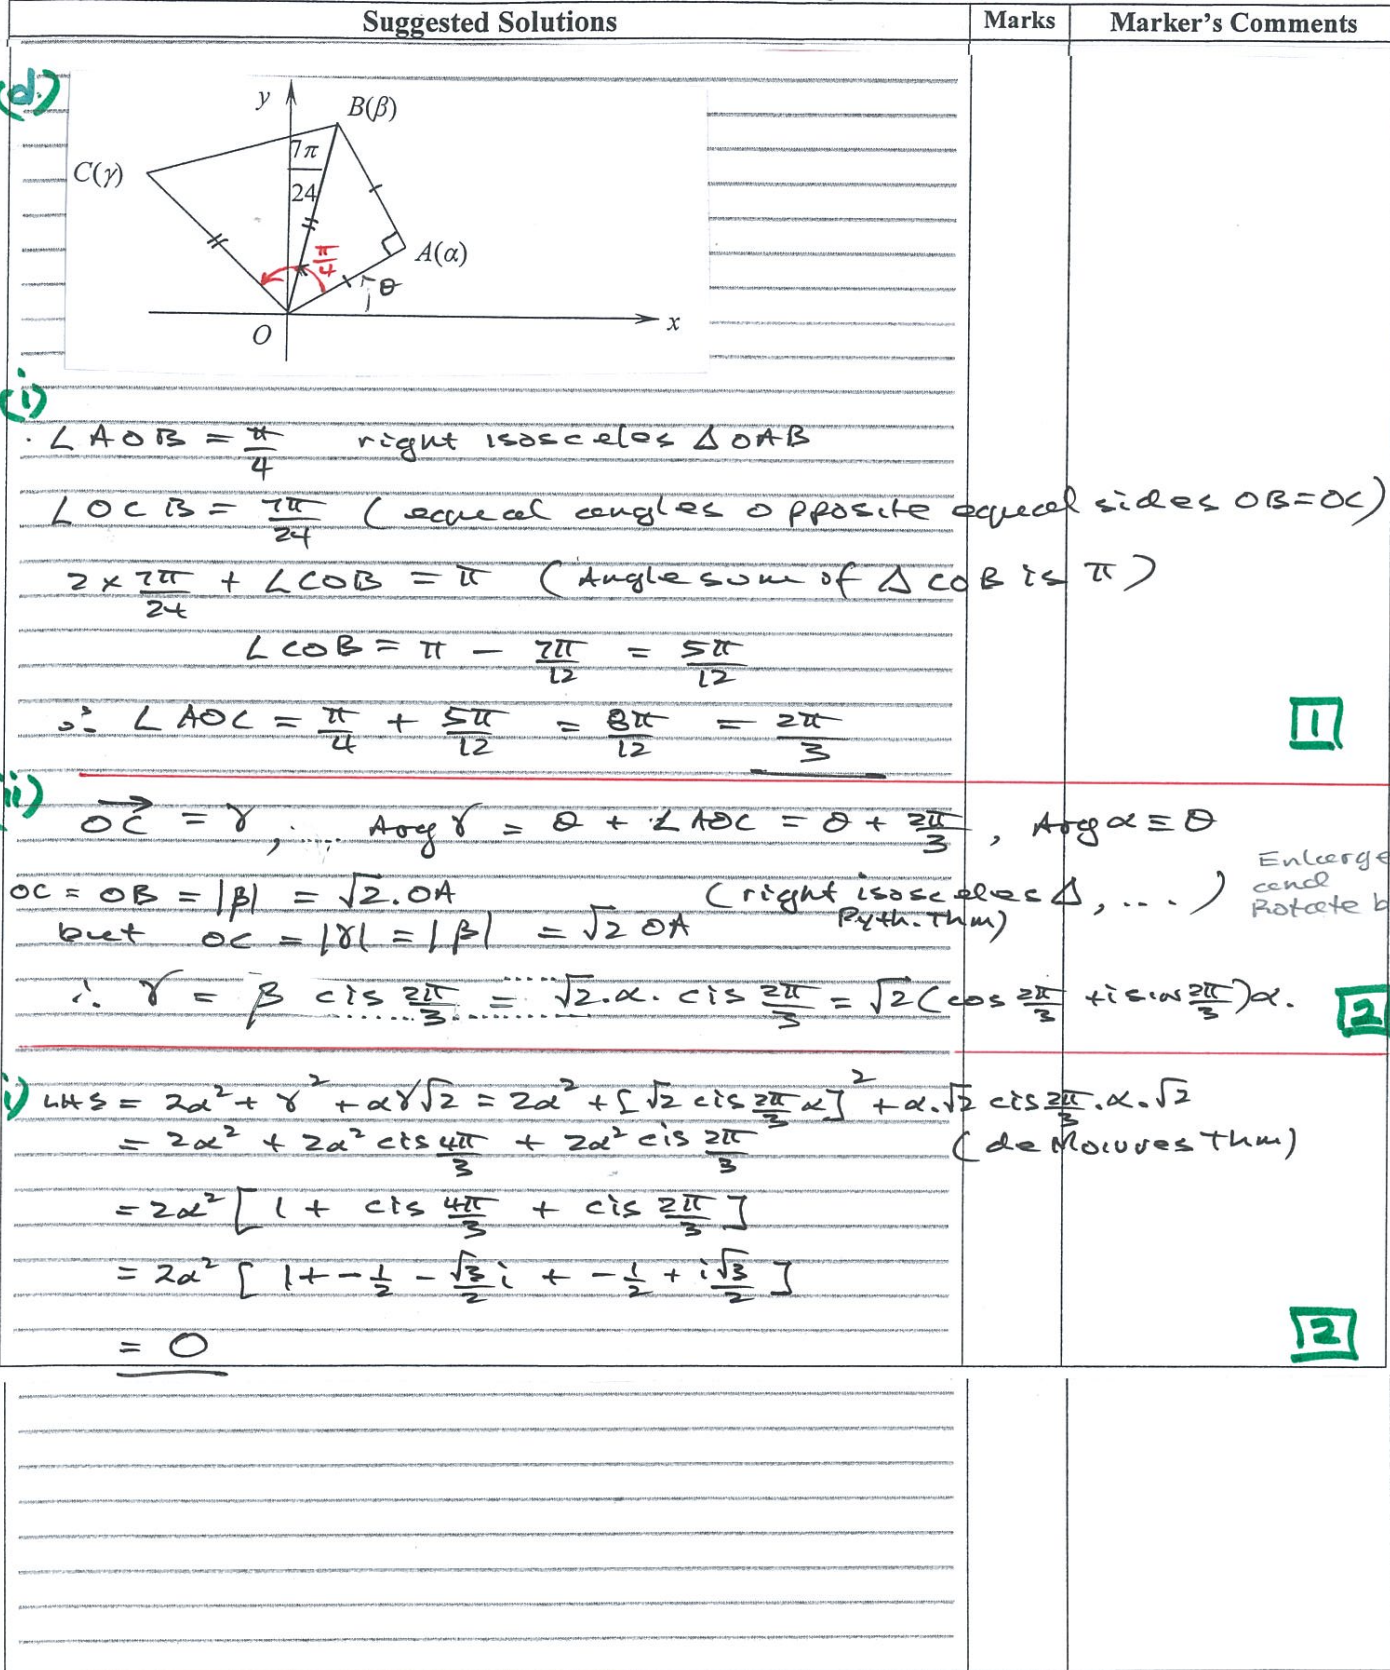 Suggested Solutions Marks Marker's Comments
(d.)
y
B(β)
C(γ)
7π
24
π/4
A(α)
θ
O
x
(i)
∠AOB = π/4 right isosceles ΔOAB
∠OCB = 7π/24 (equal angles opposite equal sides OB=OC)
2 × 7π/24 + ∠COB = π (Angle sum of ΔCOB is π)
∠COB = π − 7π/12 = 5π/12
∴ ∠AOC = π/4 + 5π/12 = 8π/12 = 2π/3
1
ii)
OC = γ, ... Arg γ = θ + ∠AOC = θ + 2π/3, Arg α = θ
Enlarge
and
Rotate b
OC = OB = |β| = √2.OA (right isosceles Δ, ....)
but OC = |γ| = |β| = √2 OA Pyth. Thm)
∴ γ = β cis 2π/3 = √2.α. cis 2π/3 = √2(cos 2π/3 + i sin 2π/3)α.
2
i) LHS = 2α² + γ² + αγ√2 = 2α² + [√2 cis 2π/3 α]² + α.√2 cis 2π/3.α.√2
= 2α² + 2α² cis 4π/3 + 2α² cis 2π/3 (de Moivres Thm)
= 2α² [1 + cis 4π/3 + cis 2π/3]
= 2α² [1 + −1/2 − √3/2 i + −1/2 + i√3/2]
= 0
2